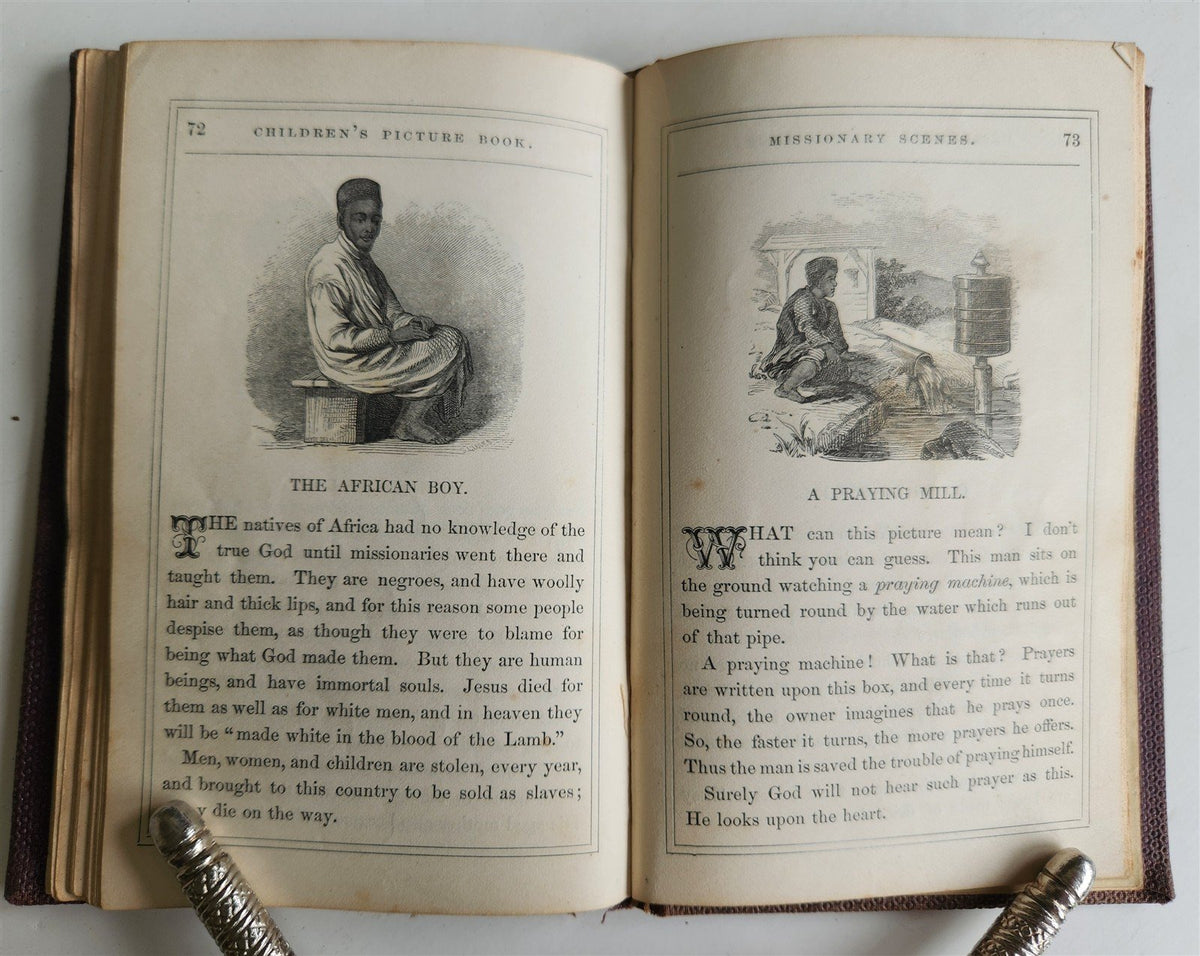 72
CHILDREN'S PICTURE BOOK.
THE AFRICAN BOY.
THE natives of Africa had no knowledge of the
true God until missionaries went there and
taught them. They are negroes, and have woolly
hair and thick lips, and for this reason some people
despise them, as though they were to blame for
being what God made them. But they are human
beings, and have immortal souls. Jesus died for
them as well as for white men, and in heaven they
will be "made white in the blood of the Lamb."
Men, women, and children are stolen, every year,
and brought to this country to be sold as slaves;
y die on the way.
MISSIONARY SCENES.
73
A PRAYING MILL.
WHAT can this picture mean? I don't
think you can guess. This man sits on
the ground watching a praying machine, which is
being turned round by the water which runs out
of that pipe.
A praying machine! What is that? Prayers
are written upon this box, and every time it turns
round, the owner imagines that he prays once.
So, the faster it turns, the more prayers he offers.
Thus the man is saved the trouble of praying himself.
Surely God will not hear such prayer as this.
He looks upon the heart.